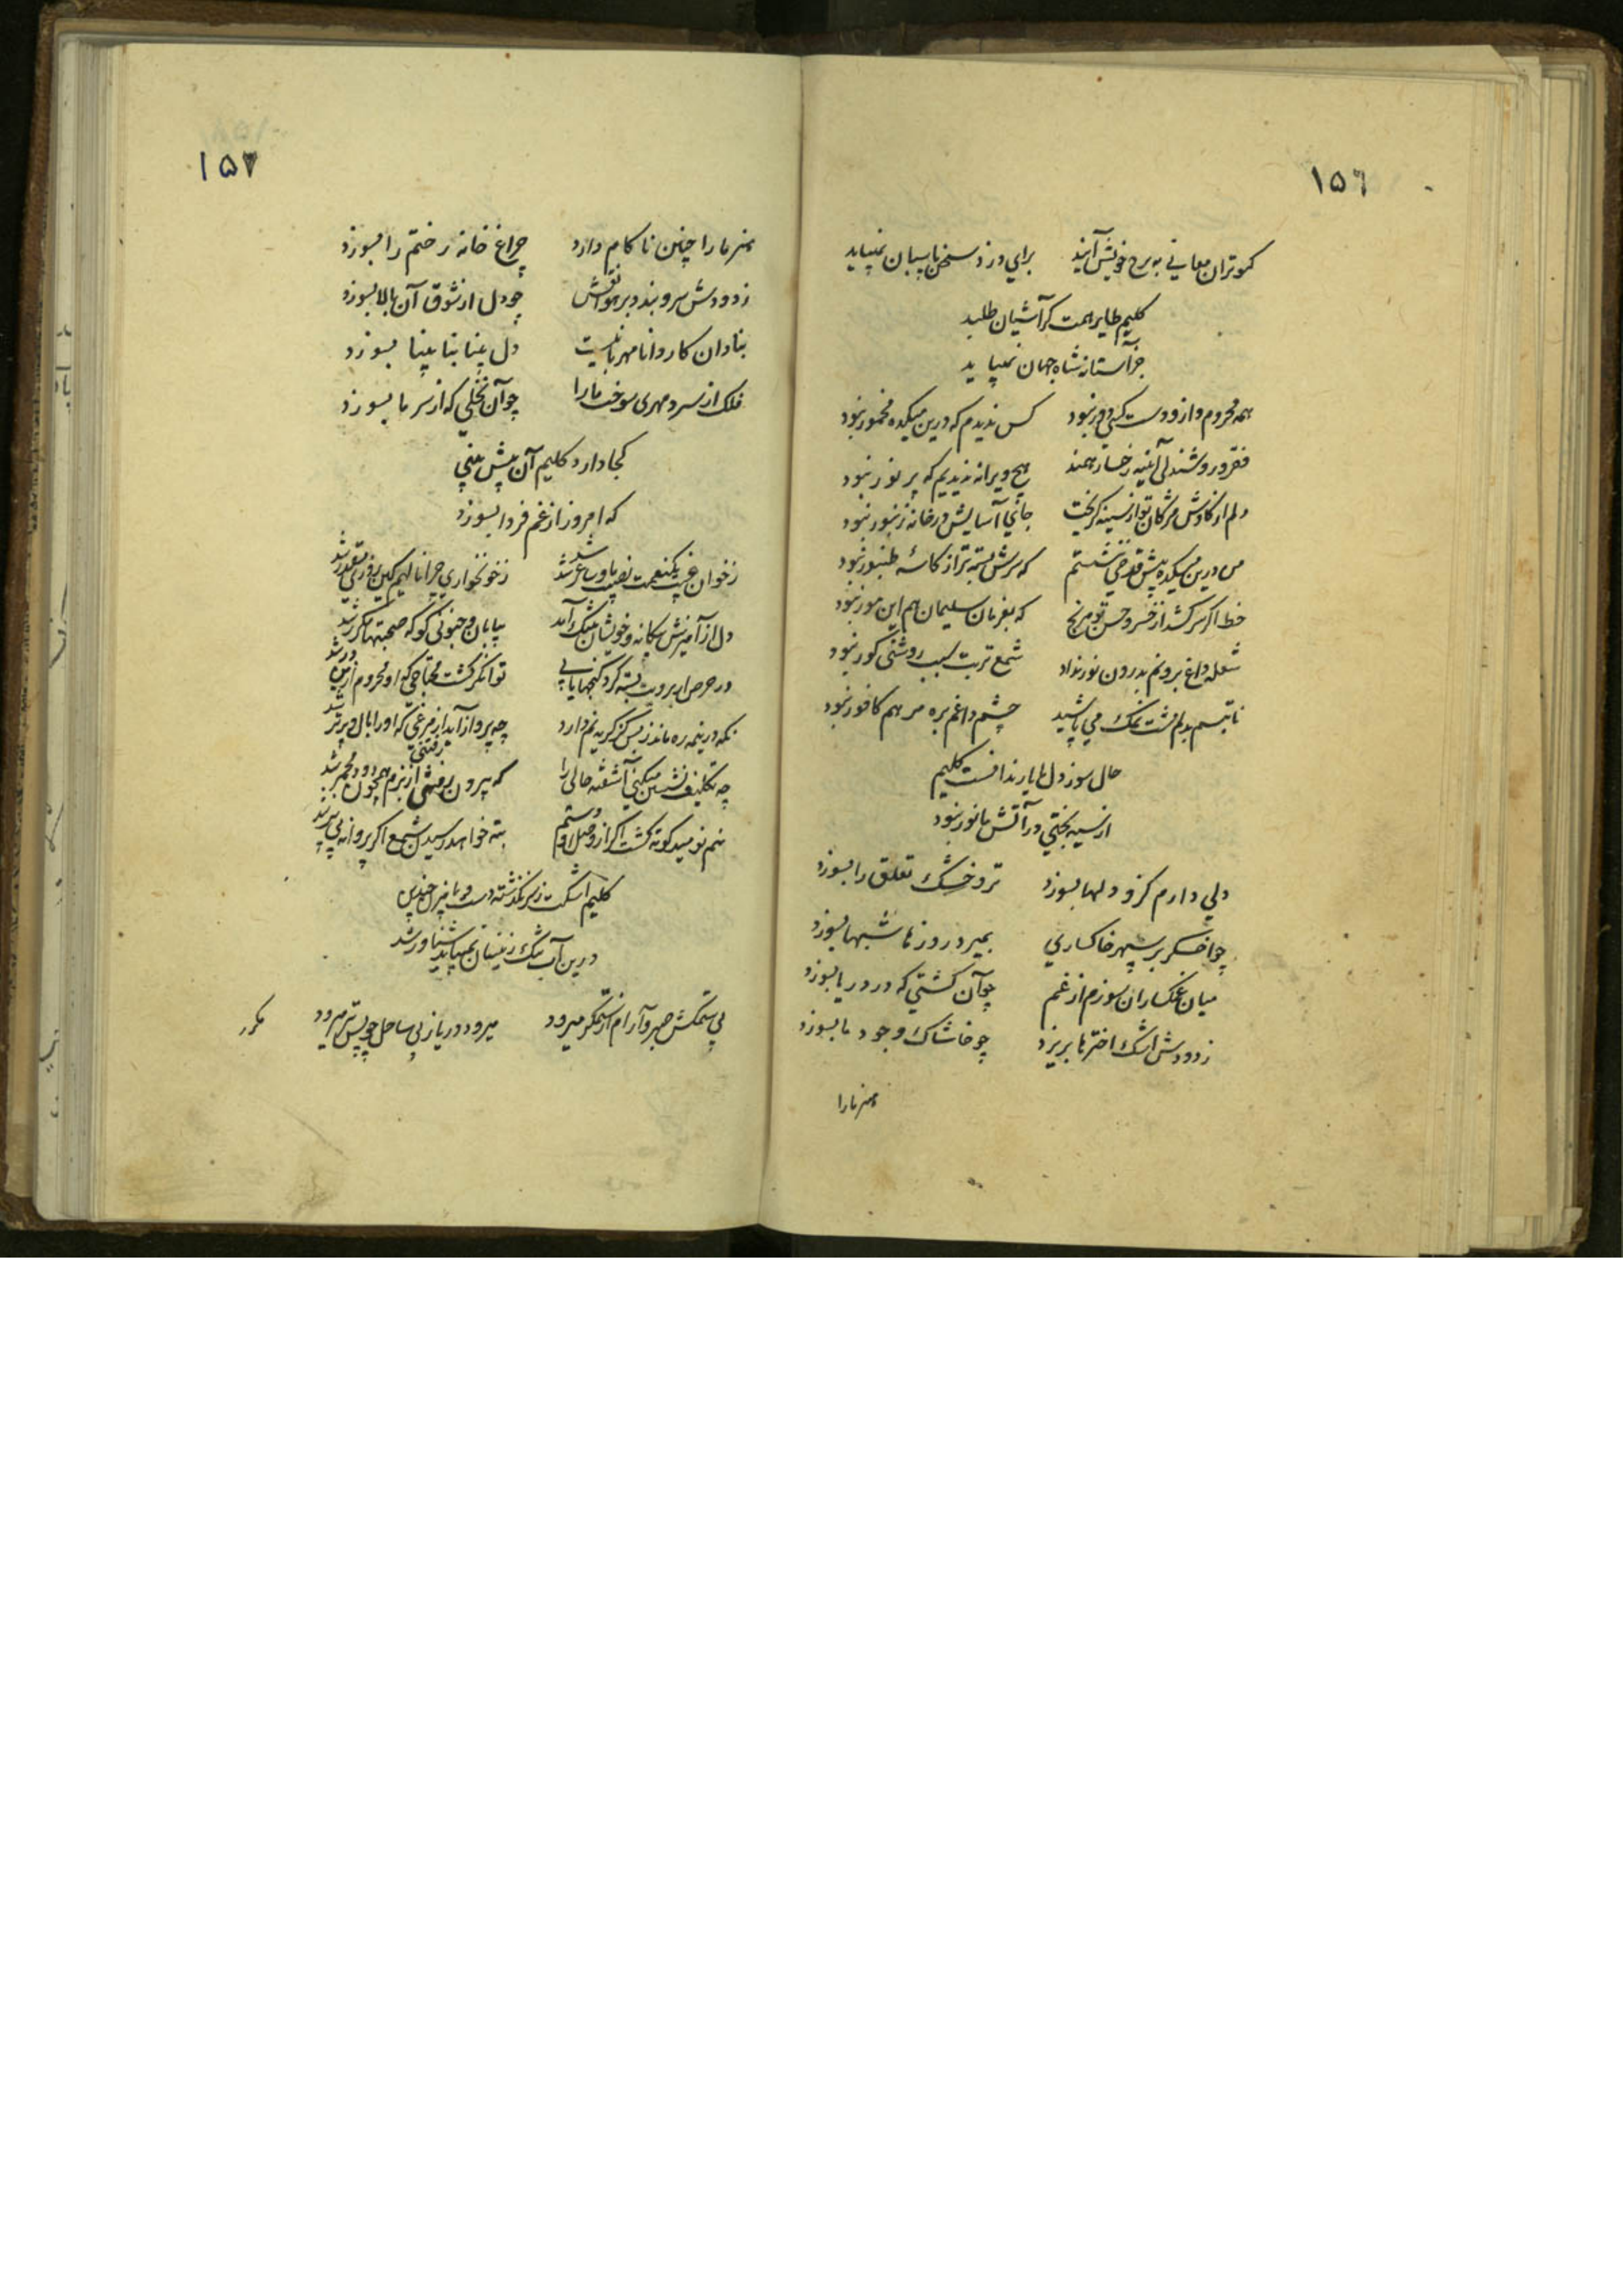 ۱۵٦
کبوتران معانی به برج خویش آیند برای دزد سخن پاسبان نمیباید
کلیم طایر همت گر آشیان طلبد
جز آستانه شاه جهان نمیباید
همه محروم و از دوست کسی دور نبود کس ندیدم که درین میکده مخمور نبود
فقر و روشندلی آئینه رخسار همند هیچ ویرانه ندیدیم که پر نور نبود
دلم از کاوش مژگان تو از سینه گریخت جای آسایش در خانه زنبور نبود
من درین میکده پیش قدحی ننشستم که سرش بسته‌تر از کاسهٔ طنبور نبود
خط اگر سر کشد از خسرو حسن تو مرنج که بفرمان سلیمان هم این مور نبود
شعله داغ برونم بدرون نور نداد شمع تربت سبب روشنی گور نبود
تا تبسم بدلم مشت نمک می پاشید چشم داغم بره مرهم کافور نبود
حال سوز دل ما یار ندانست کلیم
از سیه بختی در آتش ما نور نبود
دلی دارم کزو دلها بسوزد تر و خشک تعلق را بسوزد
چو اخگر بر سپهر خاکساری بمیرد روزها شبها بسوزد
میان غمگساران سوزم از غم چو آن کشتی که در دریا بسوزد
ز دودش اشک اخترها بریزد چو خاشاک وجود ما بسوزد
هنر ما را
۱۵۷
هنر ما را چنین ناکام دارد چراغ خانه رختم را بسوزد
ز دودش سرو بندد بر هوا نقش چو دل از شوق آن بالا بسوزد
بنادان کار دانا مهربانیست دل بینا بنابینا بسوزد
فلک از سرد مهری سوخت ما را چو آن نخلی که از سرما بسوزد
کجا دارد کلیم آن پیش بینی
که امروز از غم فردا بسوزد
ز خوان غیب یکنعمت نصیب ما و ساغر شد ز خونخواری چرا نالیم کین روزی مقدر شد
دل از آمیزش بیگانه و خویشان بتنگ آمد بیابان جنونی کو که صحبتها مکرر شد
در حرص ار برویت بسته گردد گنجها یابی توانگر گشت محتاجی که او محروم ازین در شد
نگه در نیمه ره ماند ز بس کز گریه نم دارد چه پرواز آید از مرغی که او را بال و پر تر شد
چه تکلیف نشستن میکنی آشفته حالی را که بیرون رفتنی از بزم همچون دود مجمر شد
نیم نومید کوته گشت اگر از وصل او دستم بته خواهد رسیدن شمع اگر پروانه بی پر شد
کلیم اشکت ز سر نگذشته دست و پا مزن چندین
درین آب تنک زینسان نمیباید شناور شد
بی ستمکش صبر و آرام از ستمگر میرود میرود دریا ز پی ساحل چو پستر میرود
مکرر